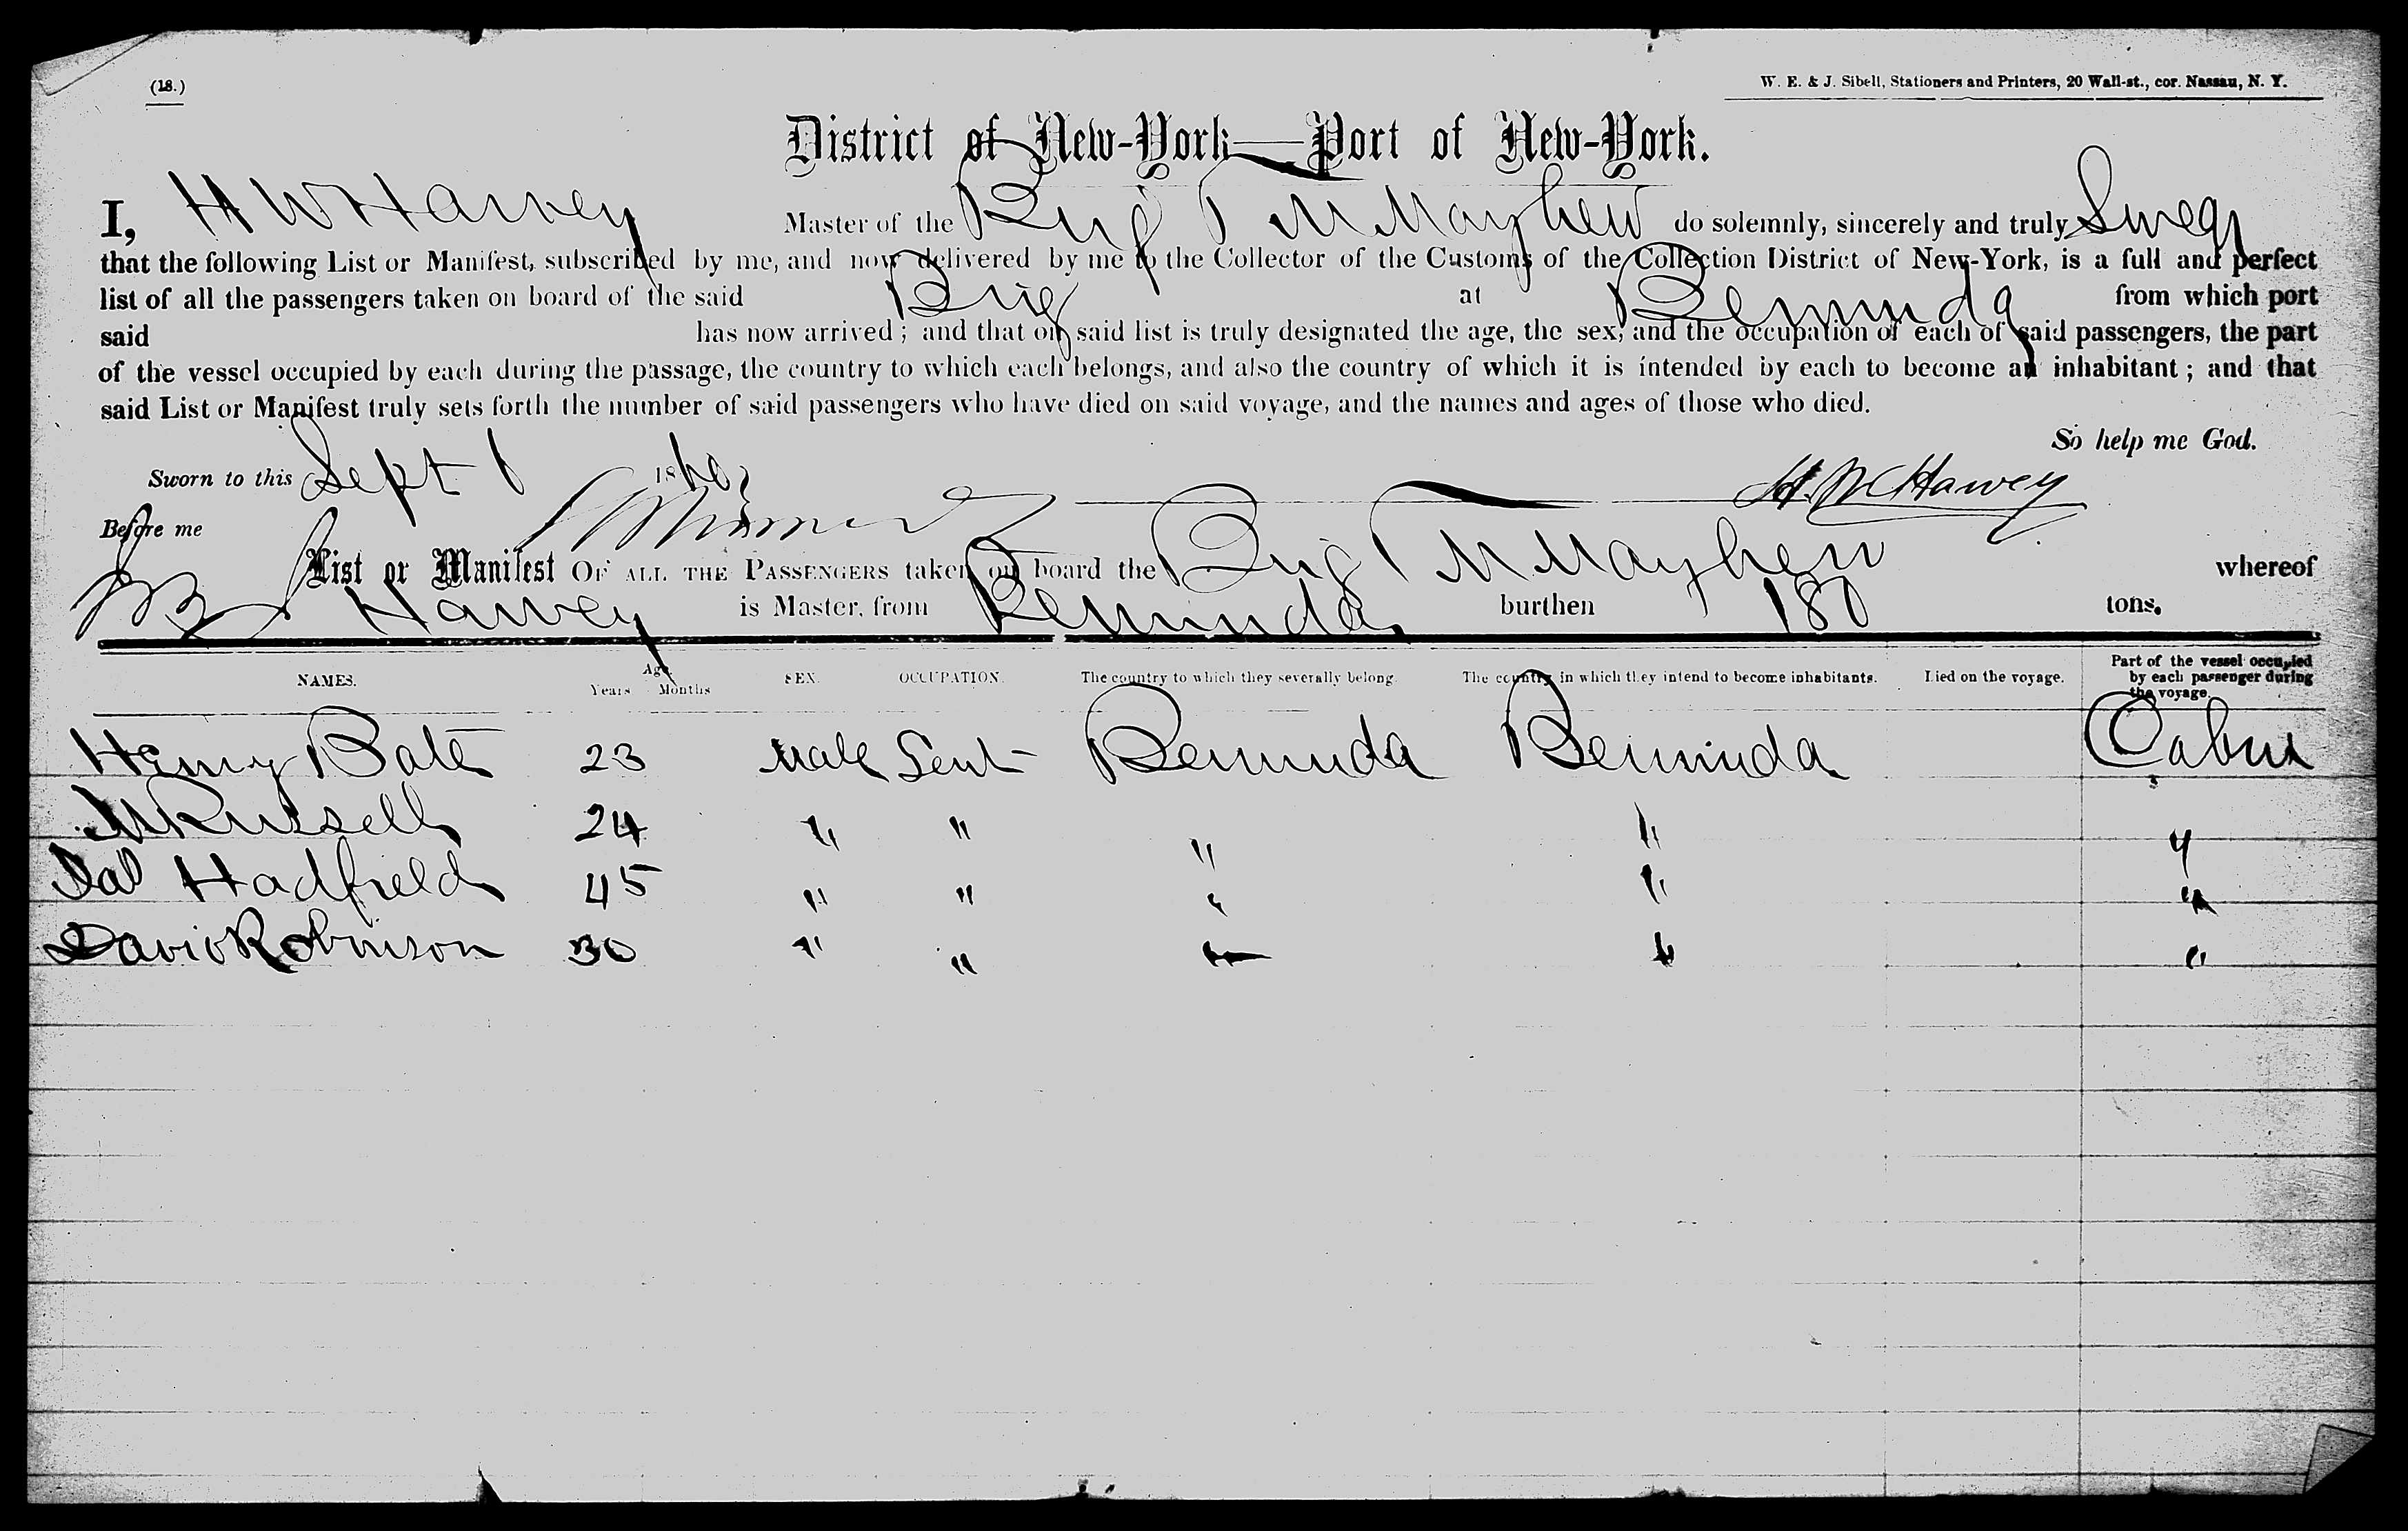 (18.)
W. E. & J. Sibell, Stationers and Printers, 20 Wall-st., cor. Nassau, N. Y.
District of New-York—Port of New-York.
I, H W Harvey Master of the Brig T M Mayhew do solemnly, sincerely and truly Swear
that the following List or Manifest, subscribed by me, and now delivered by me to the Collector of the Customs of the Collection District of New-York, is a full and perfect
list of all the passengers taken on board of the said Brig at Bermuda from which port
said has now arrived; and that on said list is truly designated the age, the sex, and the occupation of each of said passengers, the part
of the vessel occupied by each during the passage, the country to which each belongs, and also the country of which it is intended by each to become an inhabitant; and that
said List or Manifest truly sets forth the number of said passengers who have died on said voyage, and the names and ages of those who died.
So help me God.
Sworn to this Sept 1 1860 H. W Harvey
Before me
List or Manifest OF ALL THE PASSENGERS taken on board the Brig T M Mayhew whereof
Harvey is Master, from Bermuda burthen 180 tons.
NAMES. Age. Years Months SEX. OCCUPATION. The country to which they severally belong. The country in which they intend to become inhabitants. Died on the voyage. Part of the vessel occupied by each passenger during the voyage.
Henry Bate 23 Male Gent Bermuda Bermuda Cabin
M Russell 24 " " " " "
Hadfield 45 " " " " "
David Robinson 30 " " " " "